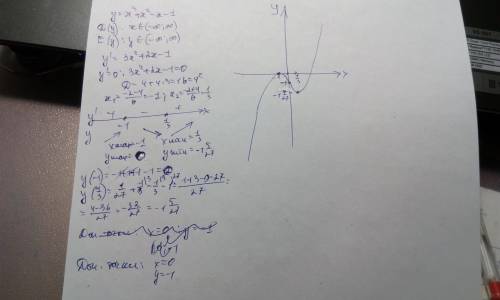 y = x³+x²-x-1
D(y): x∈(-∞;∞)
E(y): y∈(-∞;∞)
y' = 3x²+2x-1
y'=0; 3x²+2x-1=0
D = 4+4·3=16=4²
x₁ = (-2-4)/6 = -1; x₂ = (-2+4)/6 = 1/3
y' + - + x
y -1 1/3
xмах=-1 xмин=1/3
yмах= yмин=-1 5/27
y(-1) = -1+1+1-1=0
y(1/3) = 1/27 + 1/9 - 1/3 - 1 = (1+3-9-27)/27 =
= (4-36)/27 = -32/27 = -1 5/27
Доп. точки: x=0
y=-1
y
x
-1
-1 5/27